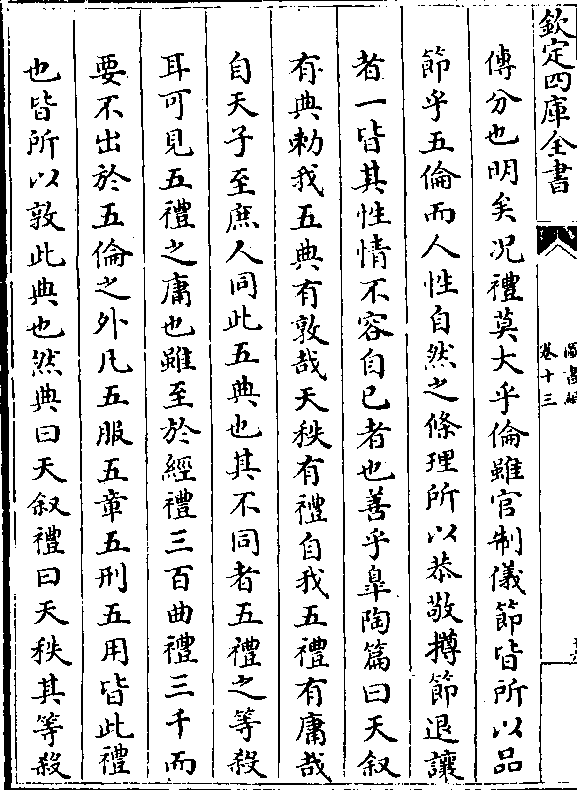 欽定四庫全書
卷十三
傳分也明矣况禮莫大乎倫雖官制儀節皆所以品
節乎五倫而人性自然之條理所以恭敬撙節退讓
者一皆其性情不容自已者也善乎臯陶篇曰天叙
有典勅我五典有敦哉天秩有禮自我五禮有庸哉
自天子至庶人同此五典也其不同者五禮之等殺
耳可見五禮之庸也雖至於經禮三百曲禮三千而
要不出於五倫之外凡五服五章五刑五用皆此禮
也皆所以敦此典也然典曰天叙禮曰天秩其等殺